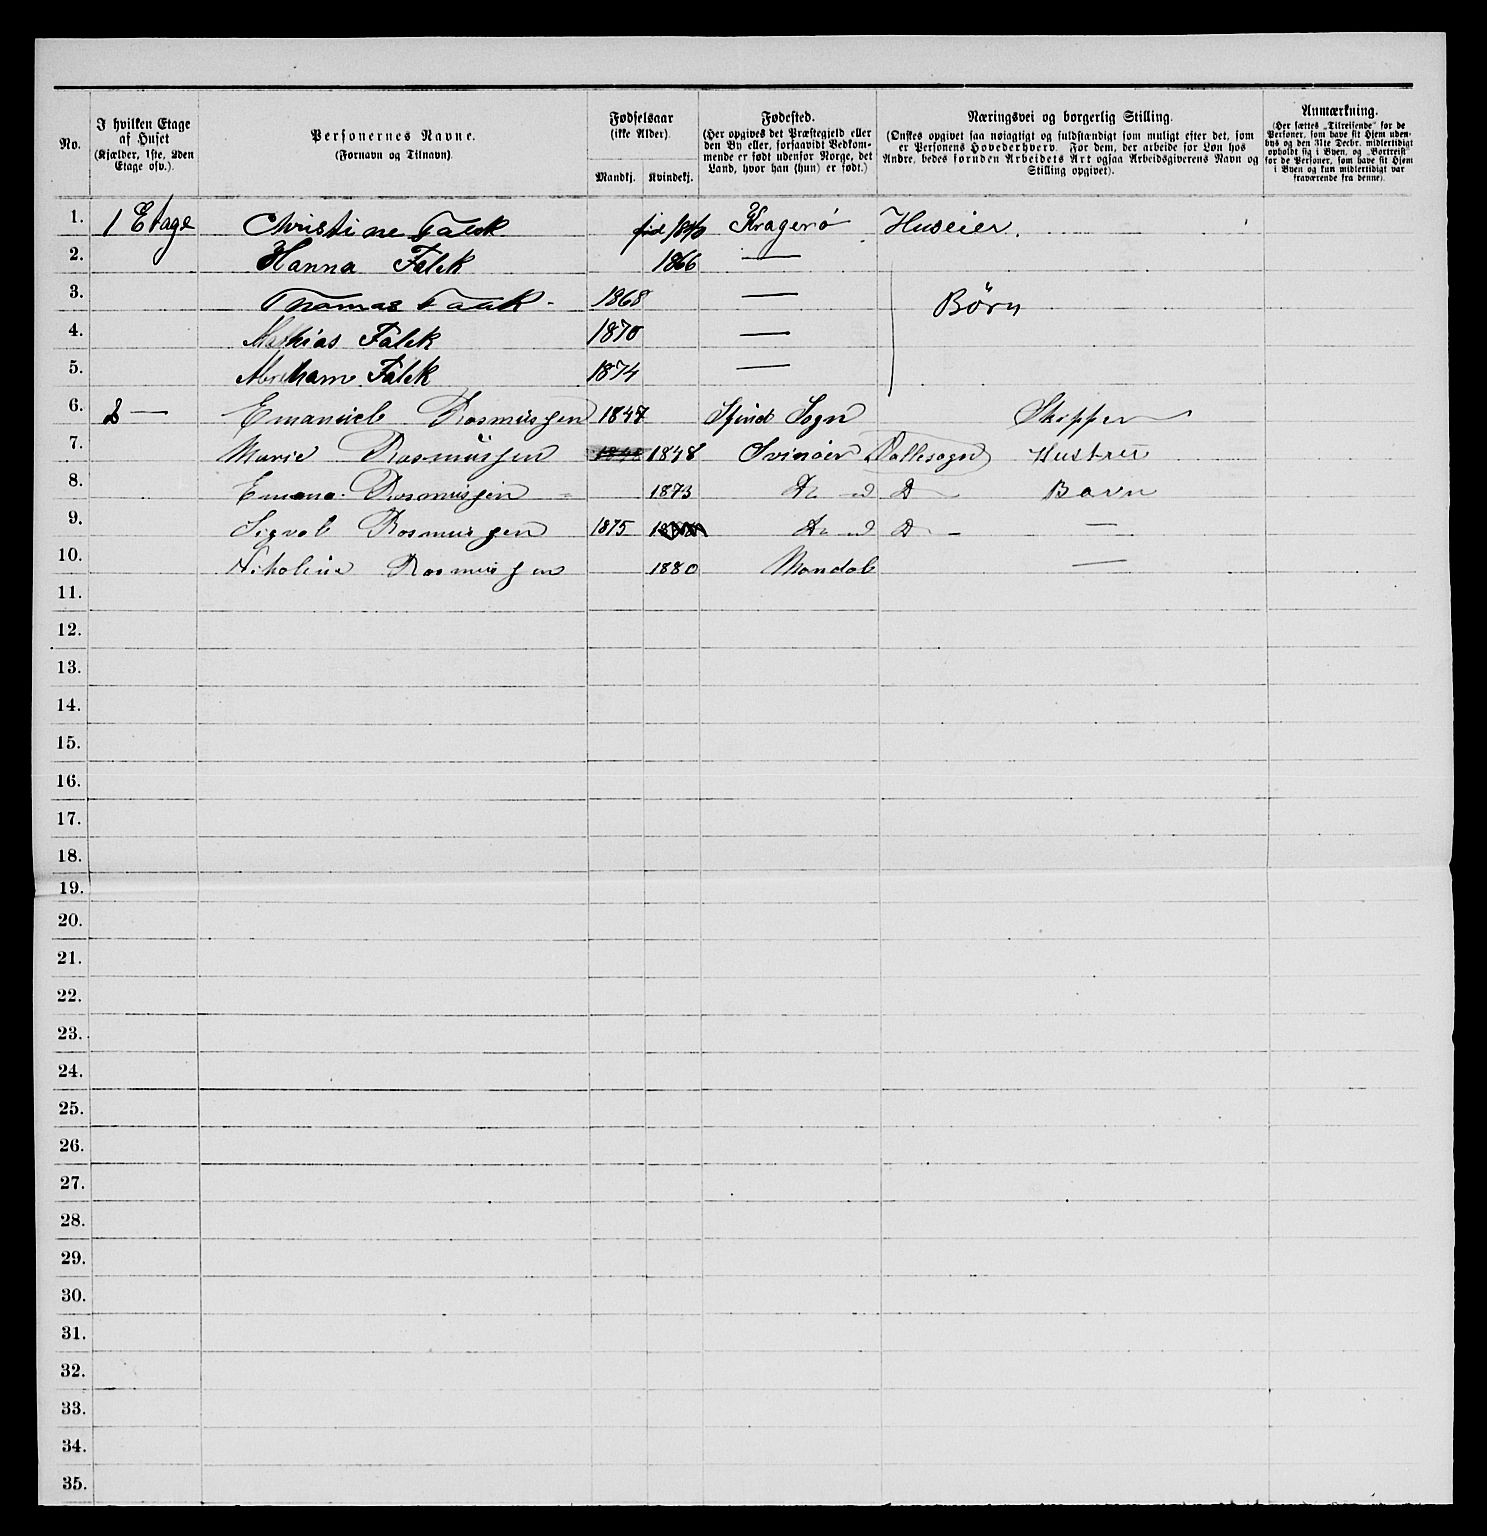 No.
I hvilken Etage af Huset (Kjælder, 1ste, 2den Etage osv.).
Personernes Navne. (Fornavn og Tilnavn).
Fødselsaar (ikke Alder).
Mandkj. Kvindekj.
Fødested. (Her opgives det Præstegjeld eller den By eller, forsaavidt Vedkommende er født udenfor Norge, det Land, hvor han (hun) er født.)
Næringsvei og borgerlig Stilling. (Ønskes opgivet saa nøiagtigt og fuldstændigt som muligt efter det, som er Personens Hovederhverv. For dem, der arbeide for Løn hos Andre, bedes foruden Arbeidets Art ogsaa Arbeidsgiverens Navn og Stilling opgivet).
Anmærkning. (Her sættes „Tilreisende" for de Personer, som have sit Hjem udenbys og den 31te Decbr. midlertidigt opholdt sig i Byen, og „Bortreist" for de Personer, som have sit Hjem i Byen og kun midlertidigt var fraværende fra denne).
1. 1 Etage Christine Falck Kragerø Huseier.
2. Hanna Falck 1866 —
3. Thomas Falck - 1868 — Børn
4. Mathias Falck 1870 —
5. Abraham Falck 1874 —
6. 2 — Emanuel Rasmussen 1847 Spind Sogn Skipper
7. Marie Rasmussen 1848 1848 Svinøer Hallesogn Hustru
8. Emma Rasmussen 1873 D — D — Barn
9. Sigval Rasmussen 1875 D — D — —
10. Nikoline Rasmussen 1880 Mandal —
11.
12.
13.
14.
15.
16.
17.
18.
19.
20.
21.
22.
23.
24.
25.
26.
27.
28.
29.
30.
31.
32.
33.
34.
35.